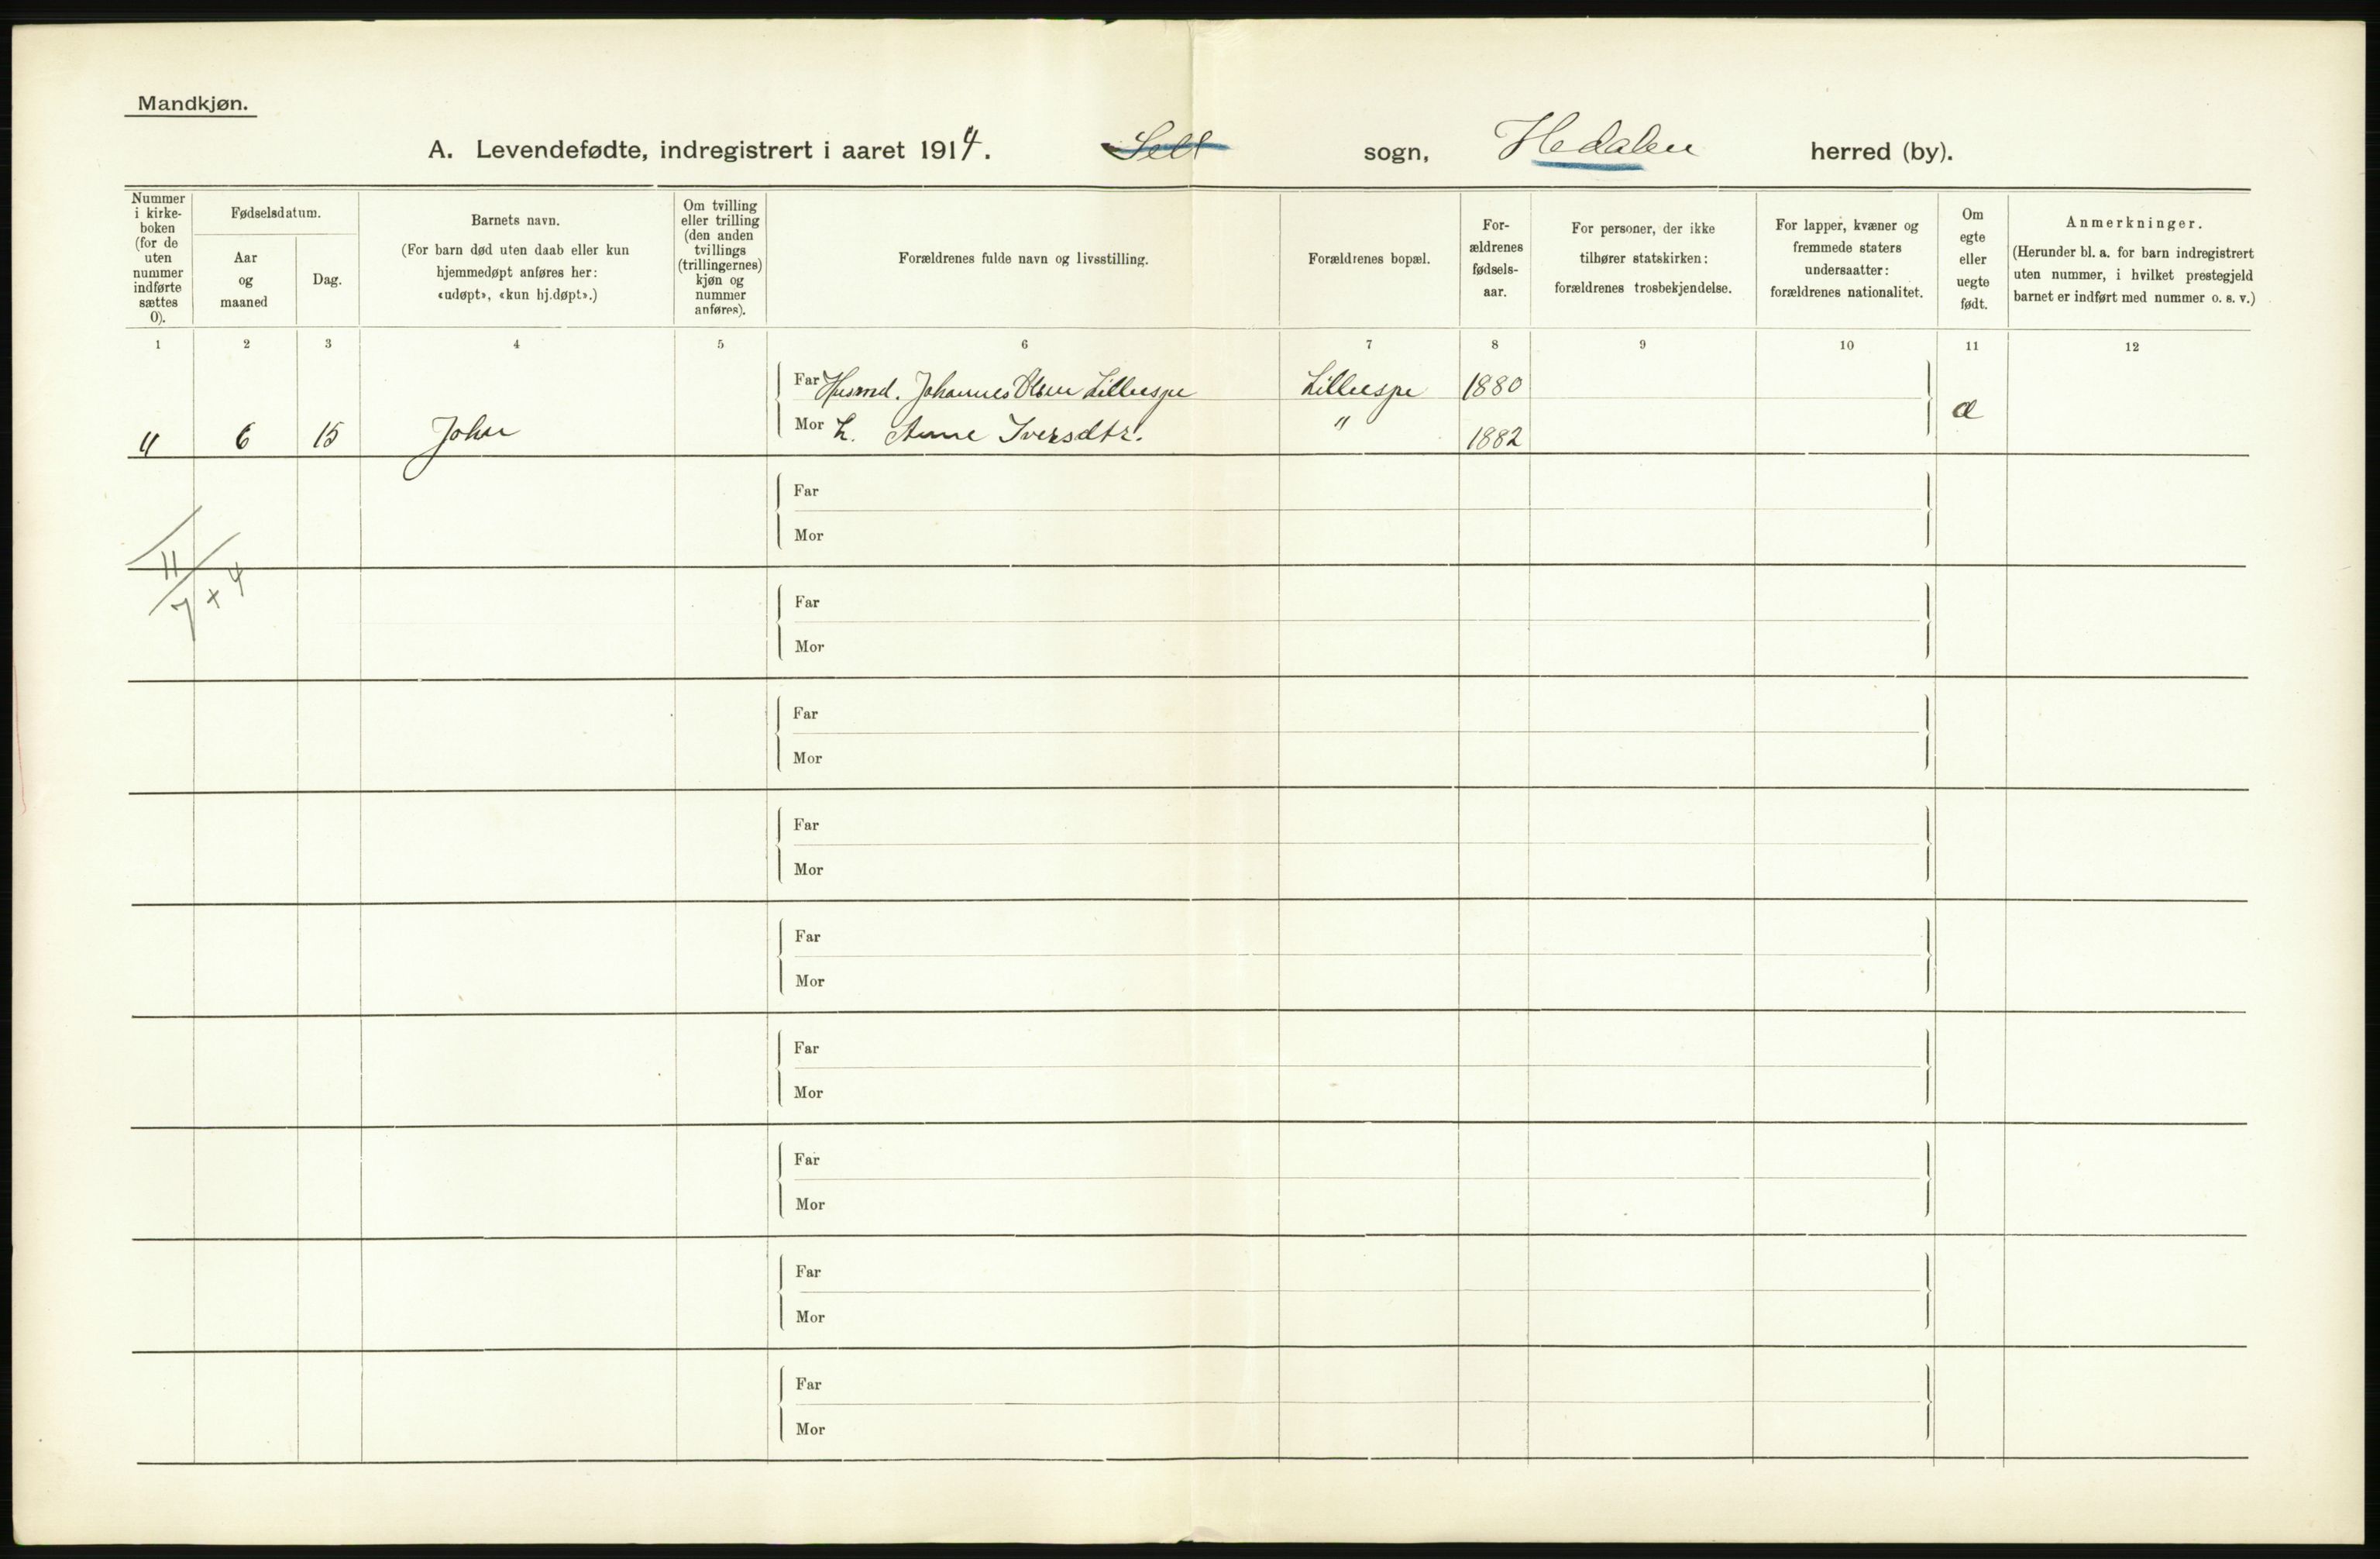 Mandkjøn.
A. Levendefødte, indregistrert i aaret 1914. Sell sogn, Hedalen herred (by).
Nummer i kirke- boken (for de uten nummer indførte sættes 0).
Fødselsdatum.
Aar og maaned
Dag.
Barnets navn.
(For barn død uten daab eller kun
hjemmedøpt anføres her:
«udøpt», «kun hj.døpt».)
Om tvilling eller trilling (den anden tvillings (trillingernes) kjøn og nummer anføres).
Forældrenes fulde navn og livsstilling.
Forældrenes bopæl.
For- ældrenes fødsels- aar.
For personer, der ikke
tilhører statskirken:
forældrenes trosbekjendelse.
For lapper, kvæner og
fremmede staters
undersaatter:
forældrenes nationalitet.
Om egte eller uegte født.
Anmerkninger.
(Herunder bl. a. for barn indregistrert
uten nummer, i hvilket prestegjeld
barnet er indført med nummer o. s. v.)
1 2 3 4 5 6 7 8 9 10 11 12
Far Husmd. Johannes Olsen Lillerspe Lillerspe 1880
Mor h. Anne Iversdtr. " 1882
11 6 15 John æ
Far
Mor
11
7 + 4
Far
Mor
Far
Mor
Far
Mor
Far
Mor
Far
Mor
Far
Mor
Far
Mor
Far
Mor